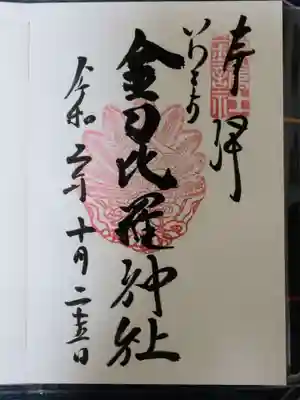 奉拝
金刀比羅神社
令和二年十月二十五日